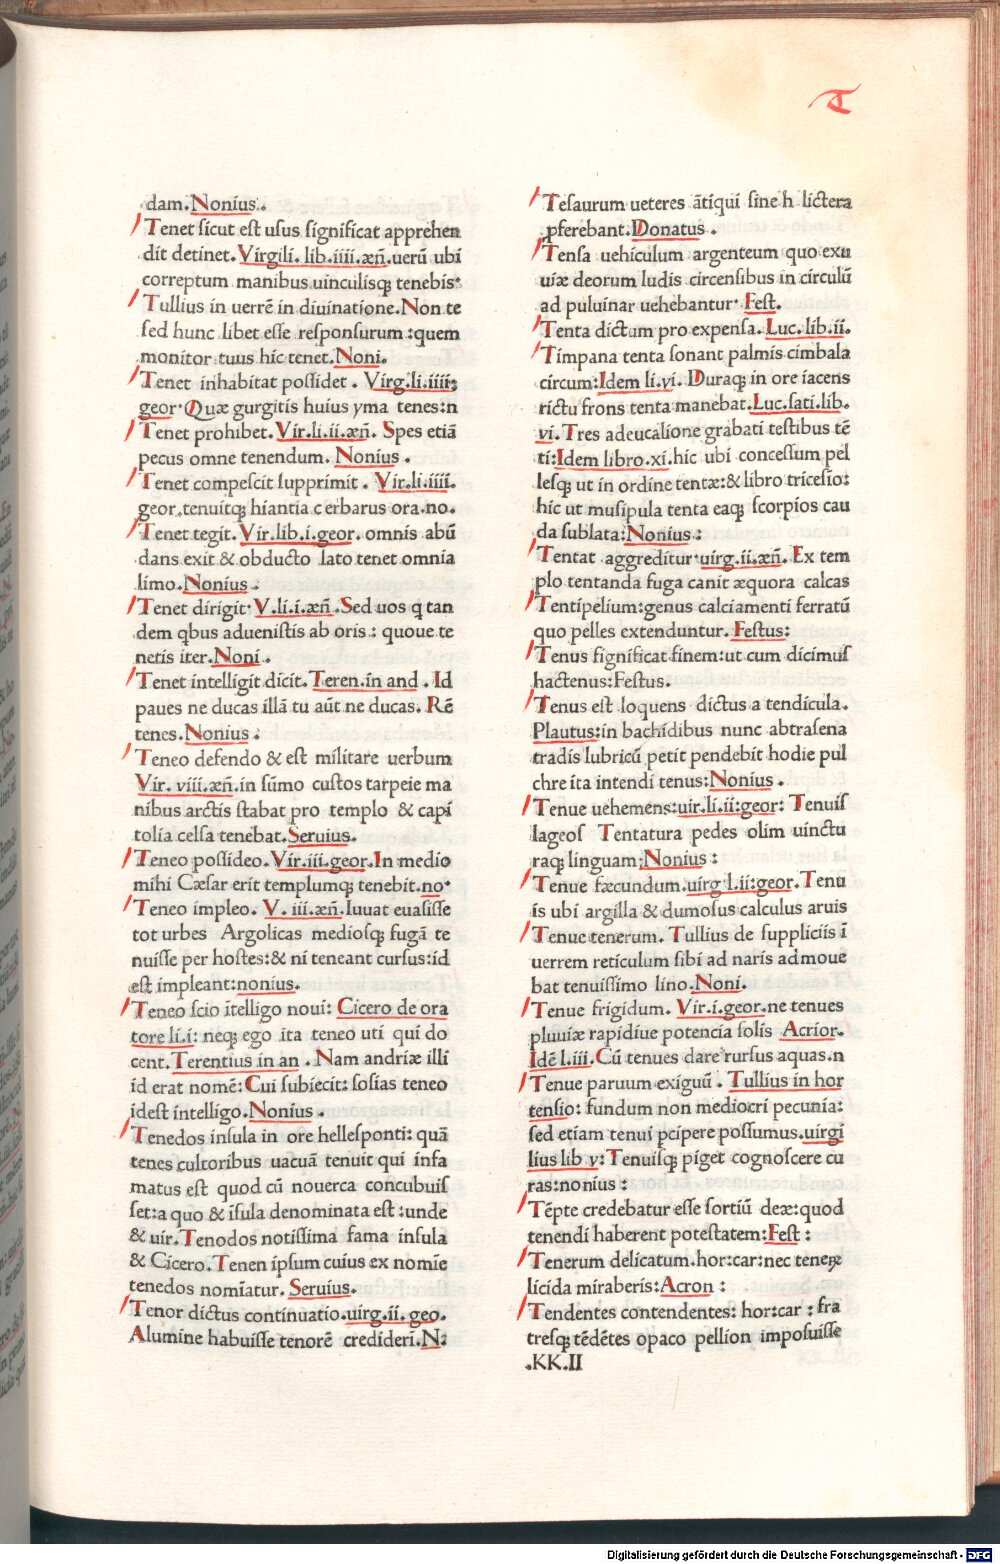 T
dam.Nonius.
Tenet sicut est usus significat apprehen
dit detinet.Virgili.lib.iiii.æn̄.uerū ubi
correptum manibus uinculisqꝫ tenebis·
Tullius in uerrē in diuinatione.Non te
sed hunc libet esse responsurum:quem
monitor tuus hic tenet.Noni.
Tenet inhabitat possidet. Virg.li.iiii;
geor·Quæ gurgitis huius yma tenes:n
Tenet prohibet.Vir.li.ii.æn̄. Spes etiā
pecus omne tenendum.Nonius.
Tenet compescit supprimit. Vir.li.iiii.
geor.tenuitqꝫ hiantia cerbarus ora.no.
Tenet tegit.Vir.lib.i.geor. omnis abū
dans exit & obducto lato tenet omnia
limo.Nonius.
Tenet dirigit·V.li.i.æn̄.Sed uos q tan
dem qbus aduenistis ab oris: quoue te
netis iter.Noni.
Tenet intelligit dicit.Teren.in and. Id
paues ne ducas illā tu aūt ne ducas. Rē
tenes.Nonius:
Teneo defendo & est militare uerbum
Vir. viii.æn̄.in sūmo custos tarpeie ma
nibus arctis stabat pro templo & capi
tolia celsa tenebat.Seruius.
Teneo possideo.Vir.iii.geor.In medio
mihi Cæsar erit templumqꝫ tenebit.no·
Teneo impleo. V. iii.æn̄.Iuuat euasisse
tot urbes Argolicas mediosqꝫ fugā te
nuisse per hostes:& ni teneant cursus:id
est impleant:nonius.
Teneo scio ītelligo noui: Cicero de ora
tore li.i: neqꝫ ego ita teneo uti qui do
cent.Terentius in an.Nam andriæ illi
id erat nomē:Cui subiecit: sosias teneo
idest intelligo.Nonius.
Tenedos insula in ore hellesponti: quā
tenes cultoribus uacuā tenuit qui infa
matus est quod cū nouerca concubuis
set:a quo & īsula denominata est:unde
& uir.Tenodos notissima fama insula
& Cicero.Tenen ipsum cuius ex nomīe
tenedos nomīatur. Seruius.
Tenor dictus continuatio.uirg.ii.geo.
Alumine habuisse tenorē crediderī.N:
Tesaurum ueteres ātiqui sine h lictera
pferebant.Donatus.
Tensa uehiculum argenteum quo exu
uiæ deorum ludis circensibus in circulū
ad puluinar uehebantur· Fest.
Tenta dictum pro expensa. Luc.lib.ii.
Timpana tenta sonant palmis cimbala
circum:Idem li.vi. Duraqꝫ in ore iacens
rictu frons tenta manebat.Luc.sati.lib.
vi.Tres adeucalione grabati testibus tē
ti:Idem libro.xi.hic ubi concessum pel
lesqꝫ ut in ordine tentæ:& libro tricesio:
hic ut musipula tenta eaqꝫ scorpios cau
da sublata:Nonius:
Tentat aggreditur·uirg.ii.æn̄. Ex tem
plo tentanda fuga canit æquora calcas
Tentipelium:genus calciamenti ferratū
quo pelles extenduntur. Festus:
Tenus significat finem:ut cum dicimus
hactenus:Festus.
Tenus est loquens dictus a tendicula.
Plautus:in bachidibus nunc abtrasena
tradis lubricū petit pendebit hodie pul
chre ita intendi tenus:Nonius.
Tenue uehemens:uir.li.ii:geor: Tenuis
lageos Tentatura pedes olim uinctu
raqꝫ linguam:Nonius:
Tenue fæcundum.uirg l.ii:geor.Tenu
is ubi argilla & dumosus calculus aruis
Tenue tenerum. Tullius de suppliciis ī
uerrem reticulum sibi ad naris admoue
bat tenuissimo lino.Noni.
Tenue frigidum. Vir.i.geor.ne tenues
pluuiæ rapidiue potencia solis Acrior.
Idē l.iii.Cū tenues dare rursus aquas.n
Tenue paruum exiguū. Tullius in hor
tensio: fundum non mediocri pecunia:
sed etiam tenui pcipere possumus.uirgi
lius lib v:Tenuisqꝫ piget cognoscere cu
ras:nonius:
Tēpte credebatur esse sortiū deæ:quod
tenendi haberent potestatem:Fest:
Tenerum delicatum.hor:car:nec teneꝝ
licida miraberis:Acron:
Tendentes contendentes: hor:car: fra
tresqꝫ tēdētes opaco pellion imposuisse
.KK.II
Digitalisierung gefördert durch die Deutsche Forschungsgemeinschaft - DFG